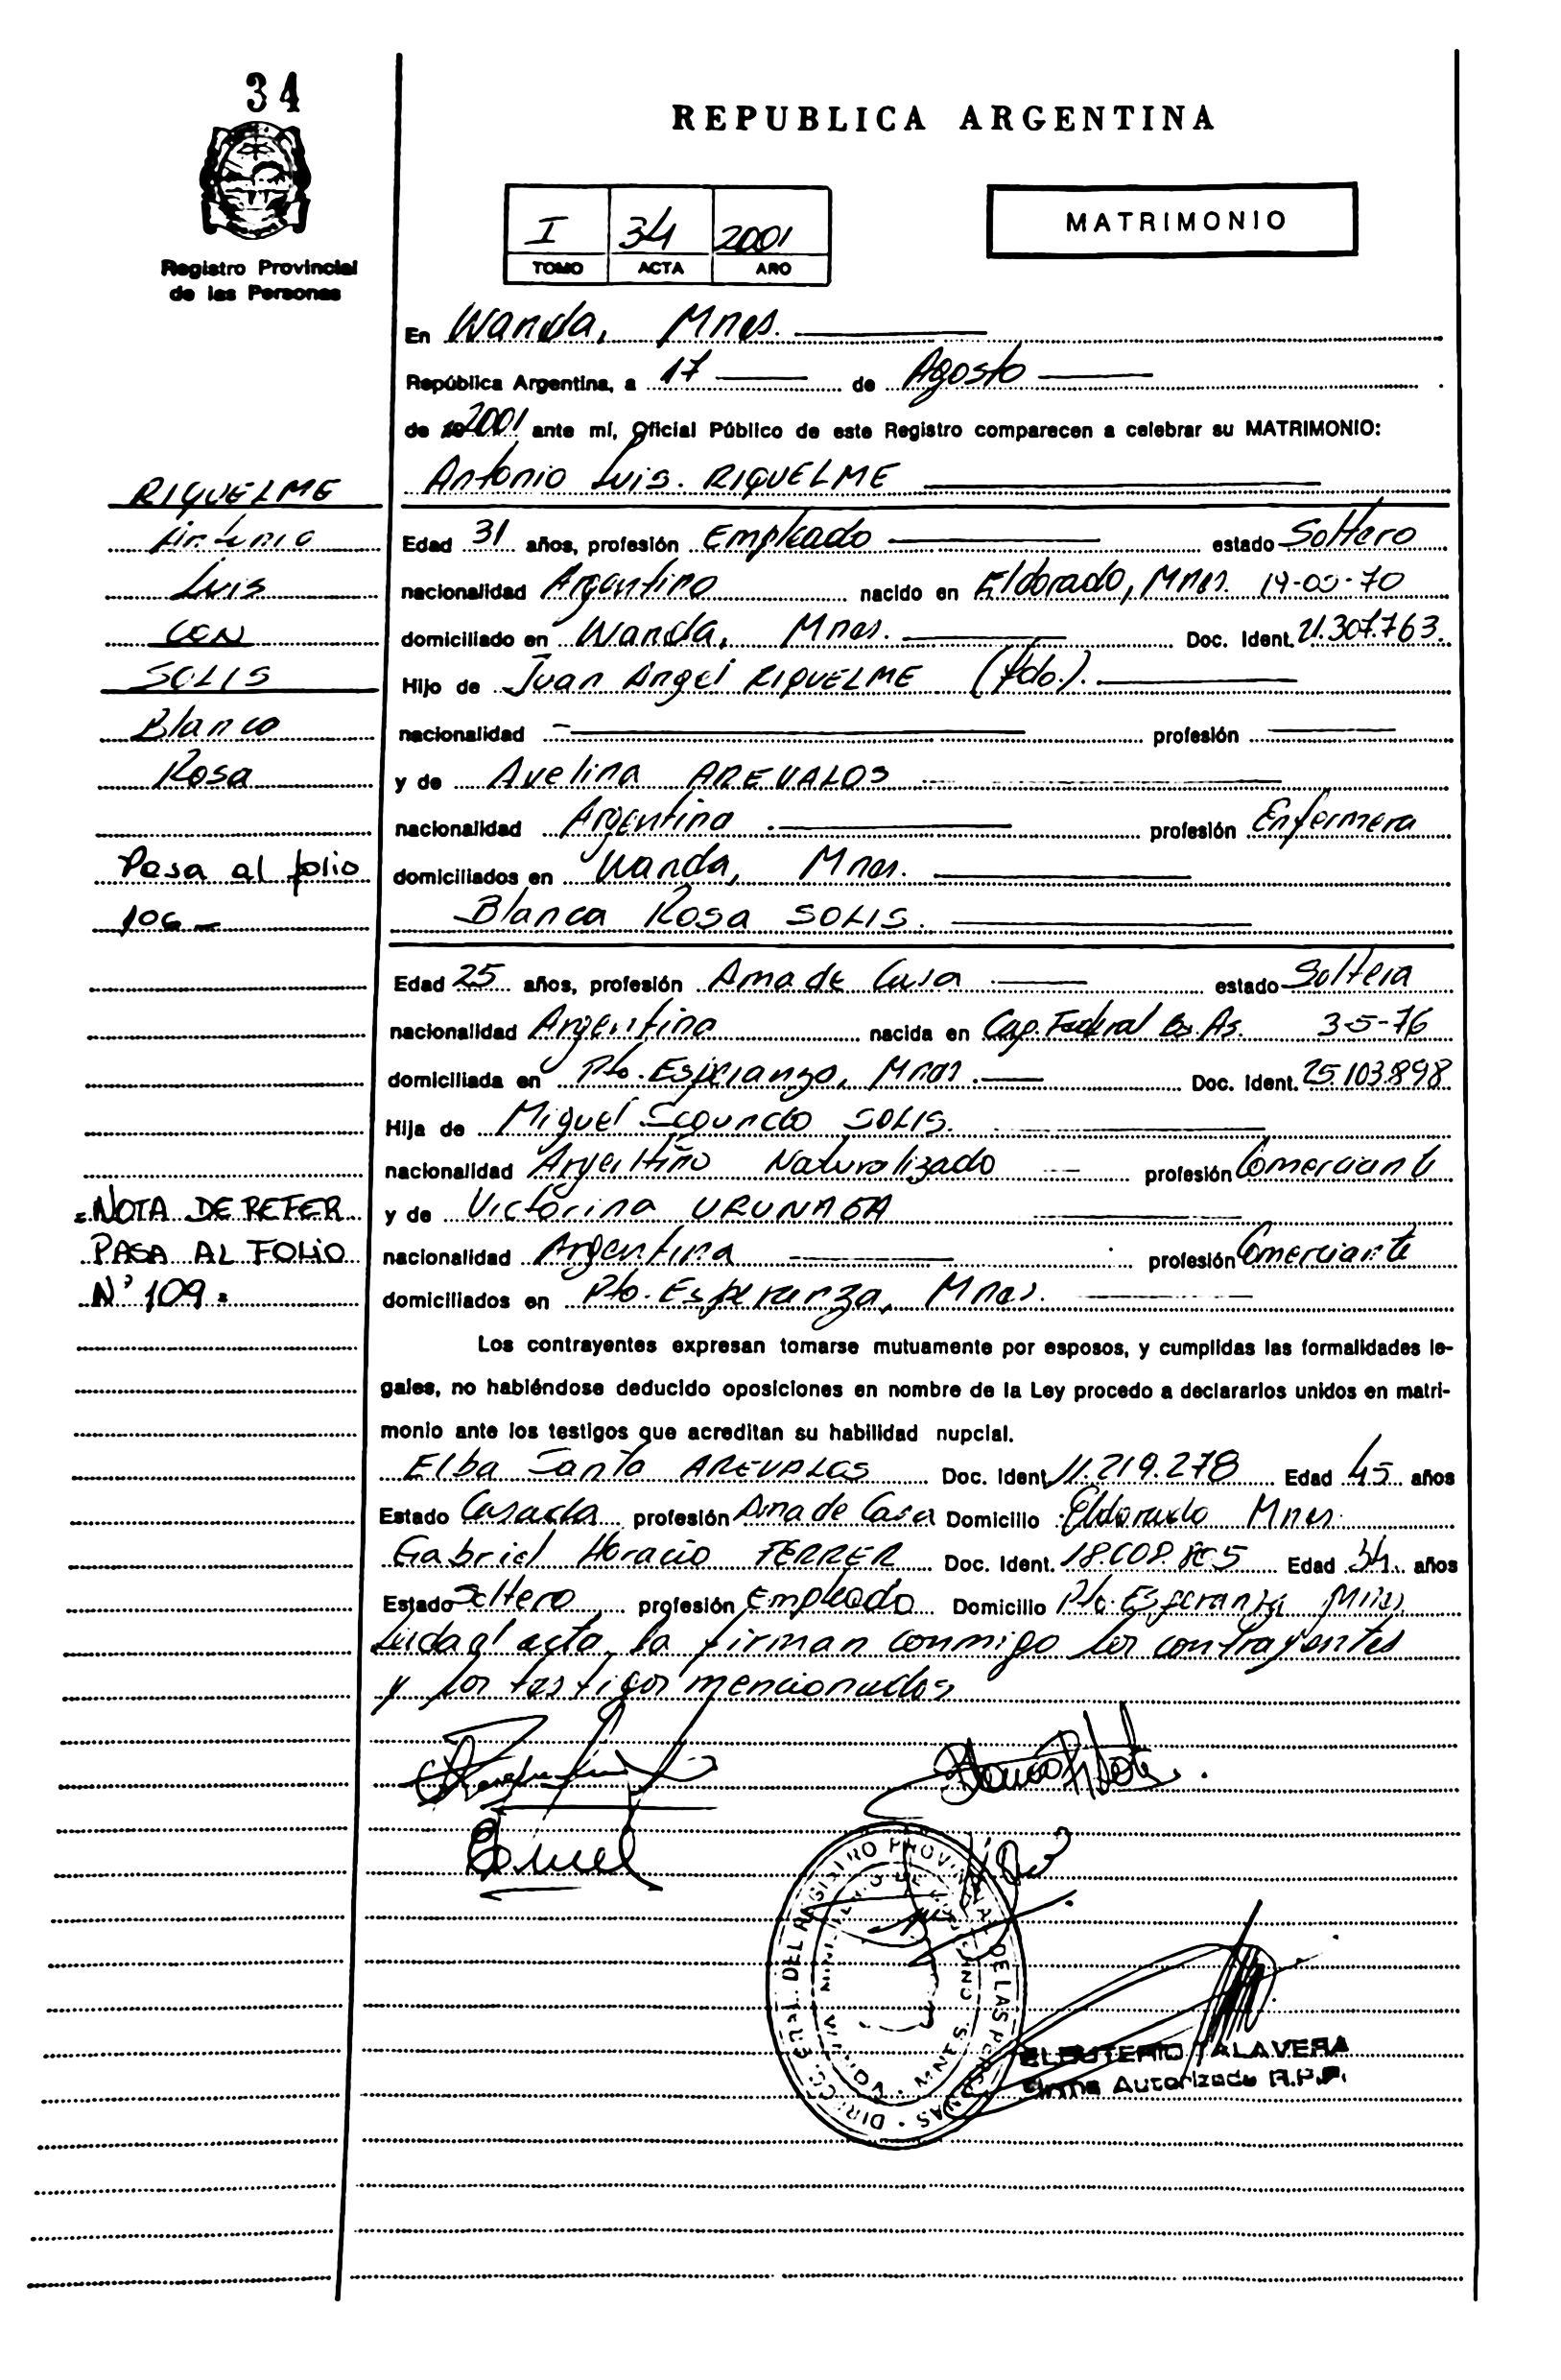 34
Registro Provincial
de las Personas
REPUBLICA ARGENTINA
I 34 2001
TOMO ACTA AÑO
MATRIMONIO
En Wanda, Mnes.
República Argentina, a 17 de Agosto
de 2001 ante mí, Oficial Público de este Registro comparecen a celebrar su MATRIMONIO:
Antonio Luis. RIQUELME
Edad 31 años, profesión Empleado estado Soltero
nacionalidad Argentino nacido en Eldorado, Mnes. 70
domiciliado en Wanda, Mnes. Doc. Ident. 21.307.763.
Hijo de Juan Angel RIQUELME (fdo.).
nacionalidad profesión
y de Avelina AREVALOS
nacionalidad Argentina profesión Enfermera
domiciliados en Wanda, Mnes.
Blanca Rosa SOLIS.
Edad 25 años, profesión Ama de Casa estado Soltera
nacionalidad Argentina nacida en Cap. Federal Bs. As. 3-5-76
domiciliada en Pto. Esperanza, Mnes. Doc. Ident. 25.103.898
Hija de Miguel Segundo SOLIS.
nacionalidad Argentino Naturalizado profesión Comerciante
y de Victorina URUNAGA
nacionalidad Argentina profesión Comerciante
domiciliados en Pto. Esperanza, Mnes.
Los contrayentes expresan tomarse mutuamente por esposos, y cumplidas las formalidades le-
gales, no habiéndose deducido oposiciones en nombre de la Ley procedo a declararlos unidos en matri-
monio ante los testigos que acreditan su habilidad nupcial.
Elba Santa AREVALOS Doc. Ident. 11.219.278 Edad 45 años
Estado Casada profesión Ama de Casa Domicilio Eldorado Mnes.
Gabriel Horacio FERRER Doc. Ident. 18.608.805 Edad 34 años
Estado Soltero profesión Empleado Domicilio Pto. Esperanza Mnes.
Leida el acta, la firman conmigo los contrayentes
y los testigos mencionados
RIQUELME
Antonio
Luis
CON
SOLIS
Blanca
Rosa
Pasa al folio
106
=NOTA DE REFER
PASA AL FOLIO
N° 109=
DIREC. GRAL. DEL REGISTRO PROVINCIAL DE LAS PERSONAS
ELEUTERIO TALAVERA
Firma Autorizada R.P.P.